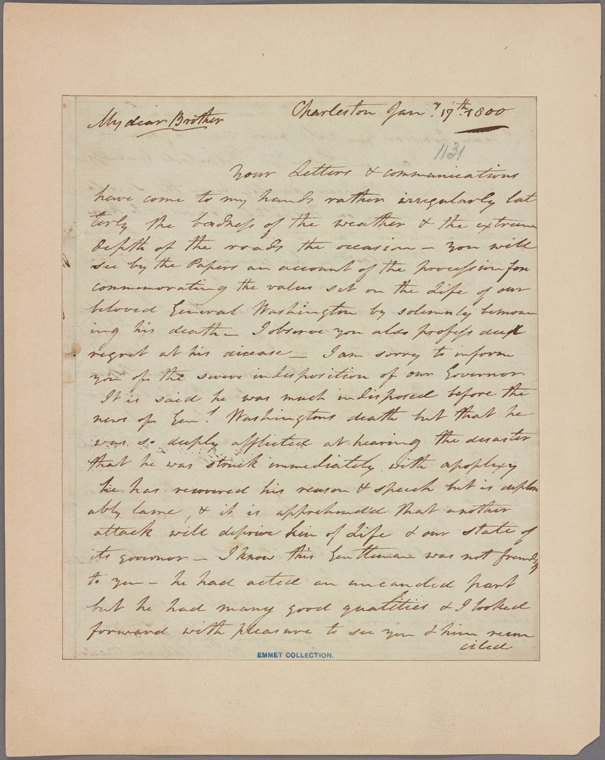 My dear Brother
Charleston Jany. 17th. 1800
1131
Your Letters & communications
have come to my hands rather irregularly lat
terly the badness of the weather & the extreme
depth of the roads the occasion — You will
see by the Papers an account of the procession for
commemorating the value set on the Life of our
beloved General Washington by solemnly bemoan
ing his death — I observe you also profess deep
regret at his decease — I am sorry to inform
you of the severe indisposition of our Governor
It is said he was much indisposed before the
news of Genl. Washingtons death but that he
was so deeply afflicted at hearing the disaster
that he was struck immediately with apoplexy
he has recovered his reason & speech but is deplor
ably lame, & it is apprehended that another
attack will deprive him of Life & our State of
its governor — I know this Gentleman was not friendly
to you — he had acted an uncandid part
but he had many good qualities & I looked
forward with pleasure to see you & him recon
ciled
EMMET COLLECTION.